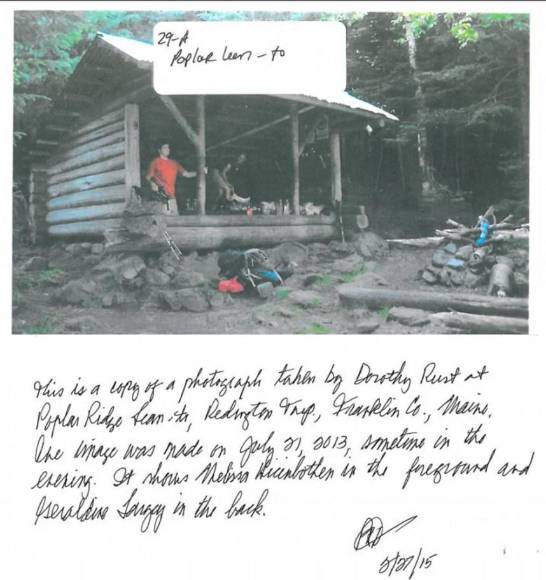 29-A
Poplar Lean-to
This is a copy of a photograph taken by Dorothy Rust at
Poplar Ridge Lean-to, Redington Twp., Franklin Co., Maine.
The image was made on July 21, 2013, sometime in the
evening. It shows Melissa in the foreground and
Geraldine Largay in the back.
2/27/15